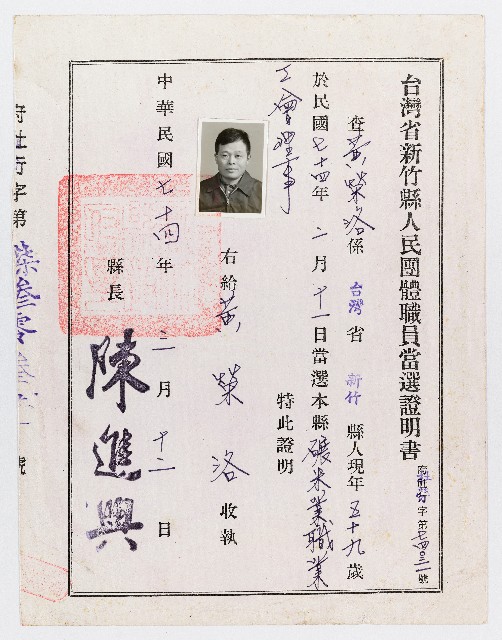 台灣省新竹縣人民團體職員當選證明書
字第七四〇三一號
查黃榮洛係台灣省新竹縣人現年五十九歲
於民國七十四年二月十一日當選本縣碾米業職業
工會理事
特此證明
右給黃榮洛收執
縣長陳進興
中華民國七十四年三月十二日
府社行字第柒叁零叁號